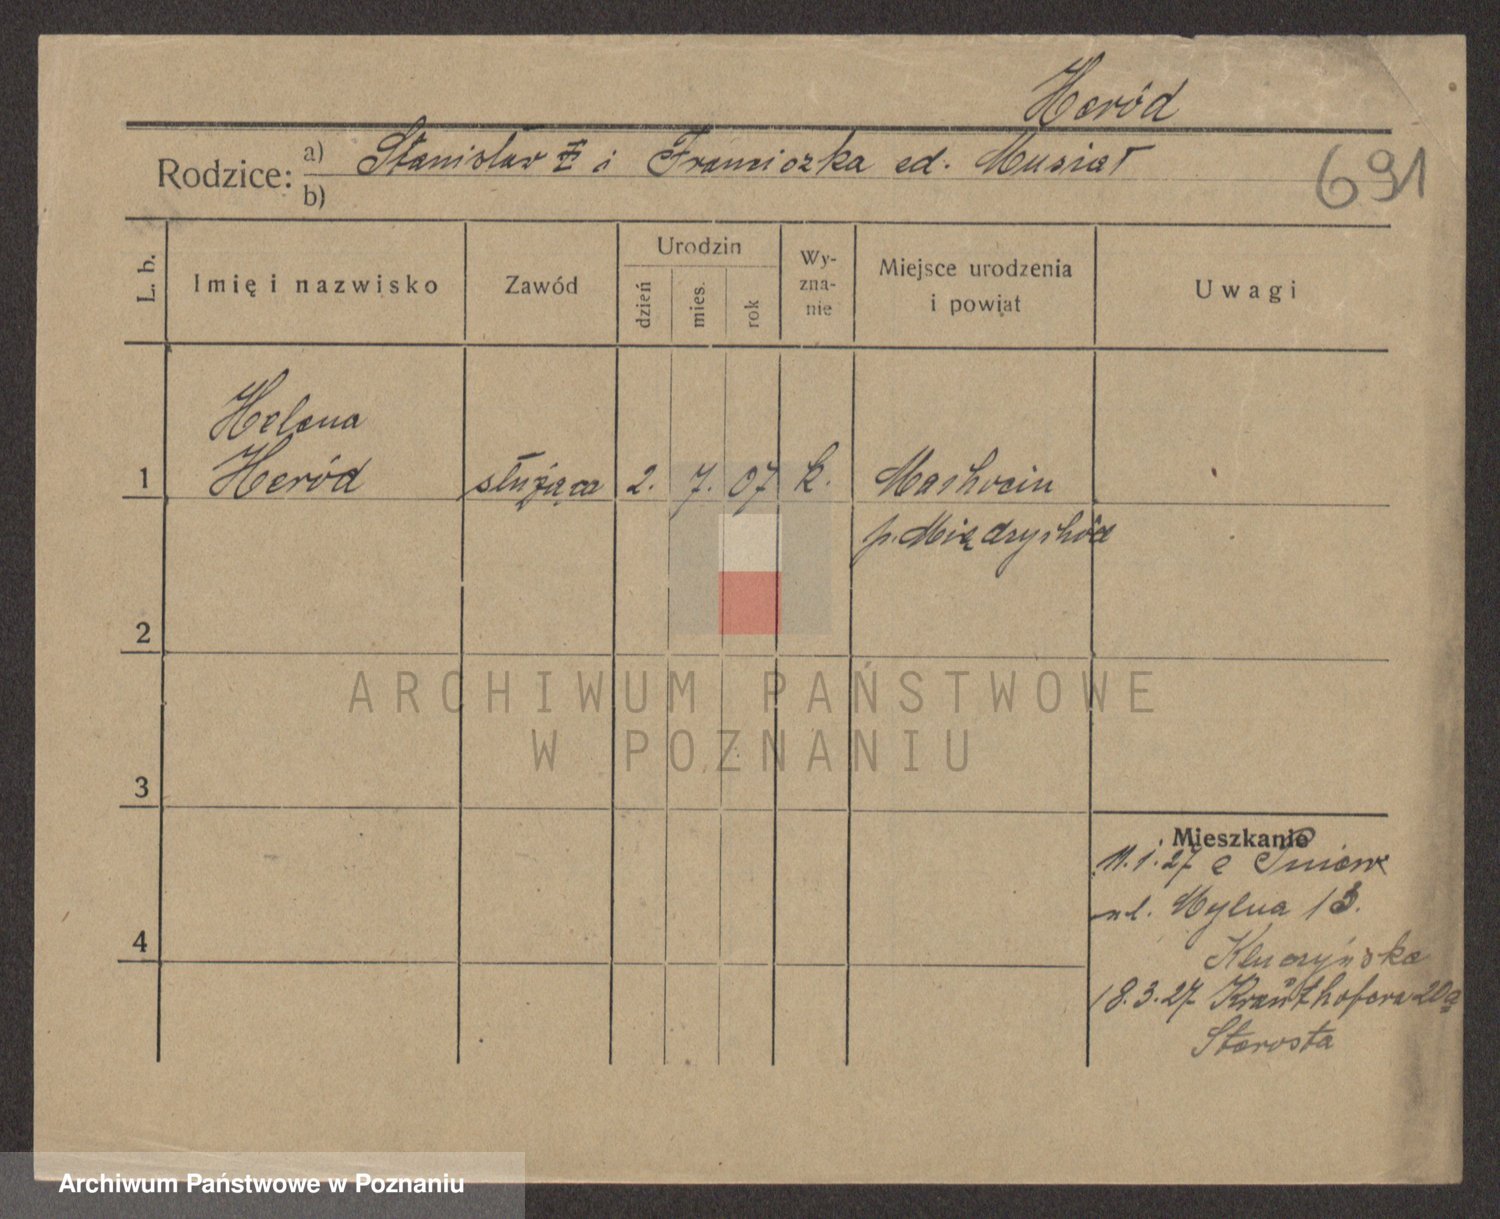 Heród
Rodzice: a) Stanisław i Franciszka zd. Musiał
b)
691
L. b.
Imię i nazwisko
Zawód
Urodzin
dzień
mies.
rok
Wy-
zna-
nie
Miejsce urodzenia
i powiat
Uwagi
Helena
1 Heród służąca 2. 7. 07 k. Mashocin
p. Międzychód
2
3
4
Mieszkanie
11.1.27 z
ul. Mylna 13.
Kluczyńska
18.3.27 Krauthofera 20a
Starosta
ARCHIWUM PAŃSTWOWE
W POZNANIU
Archiwum Państwowe w Poznaniu